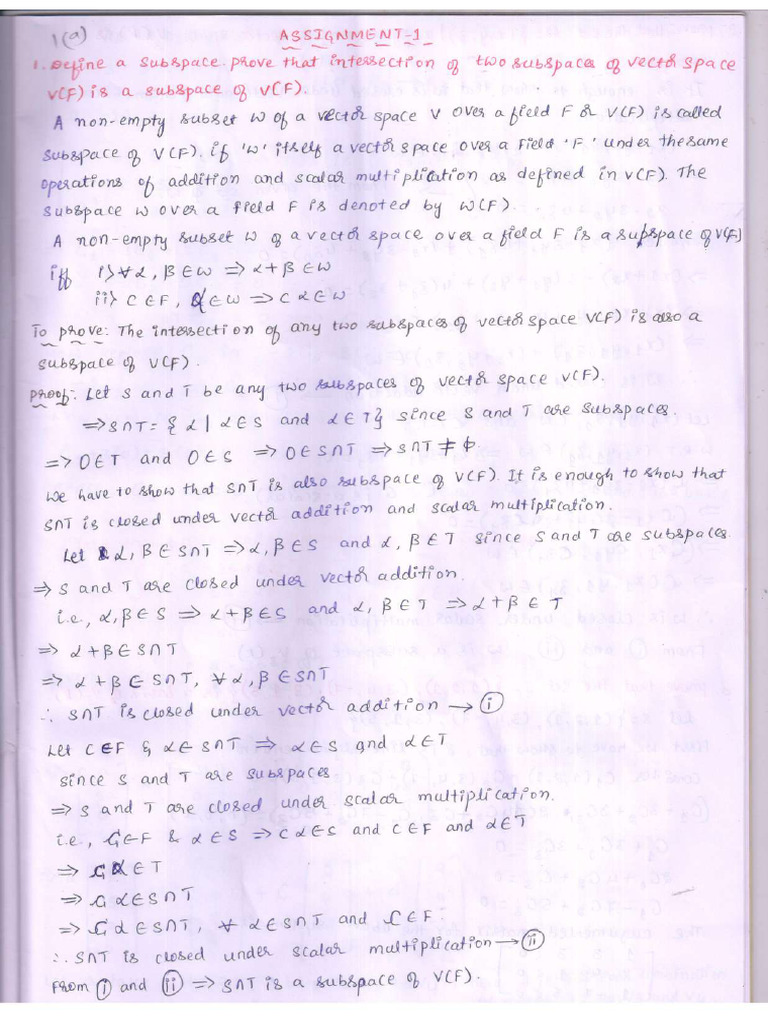 1(a)
ASSIGNMENT-1
1. Define a subspace. prove that intersection of two subspaces of vector space
V(F) is a subspace of V(F).
A non-empty subset W of a vector space V over a field F or V(F) is called
subspace of V(F). if 'W' itself a vector space over a Field 'F' under the same
operations of addition and scalar multiplication as defined in V(F). The
subspace W over a field F is denoted by W(F).
A non-empty subset W of a vector space over a field F is a subspace of V(F)
iff i> ∀ α, β ∈ W ⇒ α+β ∈ W
ii> C ∈ F, α ∈ W ⇒ C α ∈ W
To prove: The intersection of any two subspaces of vector space V(F) is also a
subspace of V(F).
Proof: Let S and T be any two subspaces of vector space V(F).
⇒ S∩T = { α | α ∈ S and α ∈ T} since S and T are subspaces.
⇒ 0 ∈ T and 0 ∈ S ⇒ 0 ∈ S∩T ⇒ S∩T ≠ φ.
We have to show that S∩T is also subspace of V(F). It is enough to show that
S∩T is closed under vector addition and scalar multiplication.
Let α, β ∈ S∩T ⇒ α, β ∈ S and α, β ∈ T since S and T are subspaces.
⇒ S and T are closed under vector addition.
i.e., α, β ∈ S ⇒ α+β ∈ S and α, β ∈ T ⇒ α+β ∈ T
⇒ α+β ∈ S∩T
⇒ α+β ∈ S∩T, ∀ α, β ∈ S∩T
∴ S∩T is closed under vector addition → (i)
Let C ∈ F & α ∈ S∩T ⇒ α ∈ S and α ∈ T
since S and T are subspaces.
⇒ S and T are closed under scalar multiplication.
i.e., C ∈ F & α ∈ S ⇒ C α ∈ S and C ∈ F and α ∈ T
⇒ C α ∈ T
⇒ C α ∈ S∩T
⇒ C α ∈ S∩T, ∀ α ∈ S∩T and C ∈ F.
∴ S∩T is closed under scalar multiplication → (ii)
From (i) and (ii) ⇒ S∩T is a subspace of V(F).